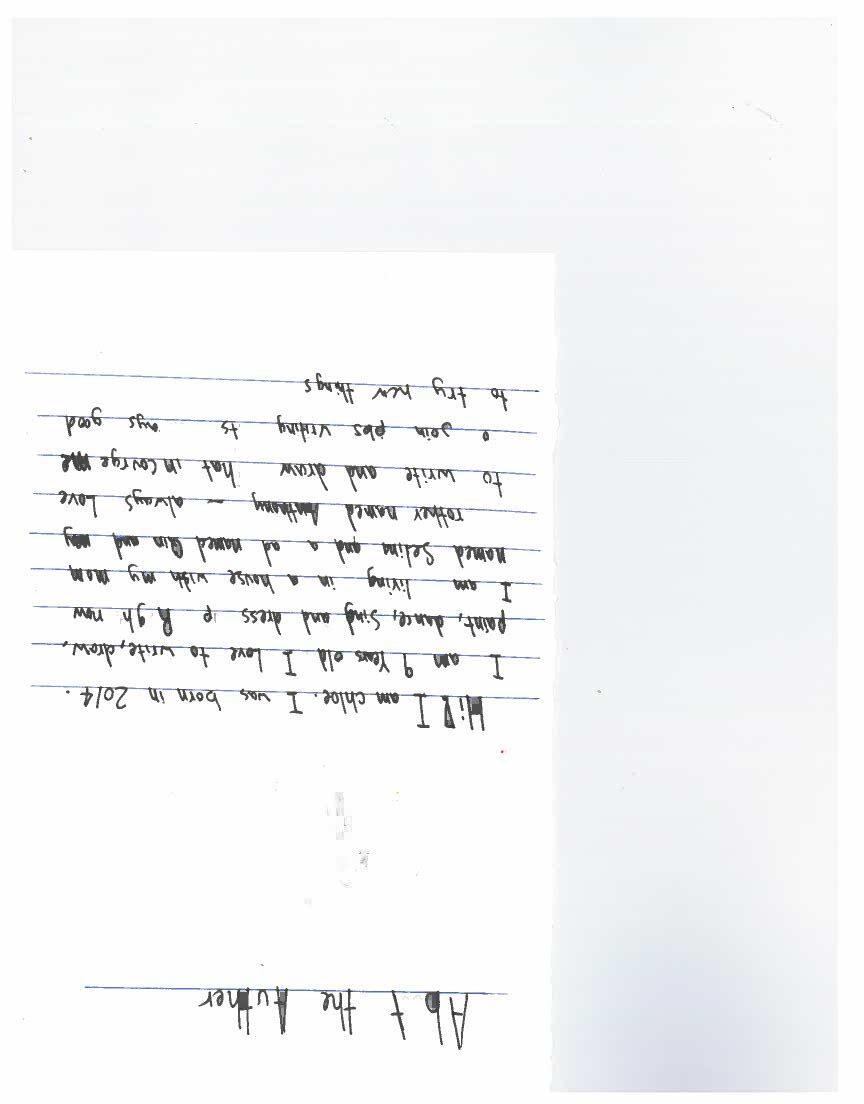 Ab t the Auther
Hi! I am chloe. I was born in 2014.
I am 9 Years old I love to write, draw,
paint, dance, sing and dress p R gh now
I am living in a house with my mom
named Selina and a ad named Qin and my
rother named Anthony always Love
to write and draw hat in courge me
o join pbs writing ts ays good
to try new things